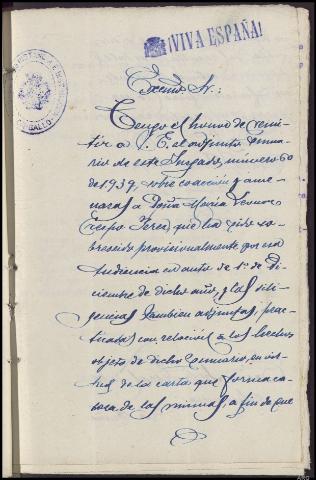 ¡VIVA ESPAÑA!
CARBALLO
Excmo. Sr.:
Tengo el honor de remi-
tir a V. E. el adjunto suma-
rio de este Juzgado, número 60
de 1939, sobre coacción y ame-
nazas a Doña María
Crespo Pérez que ha sido so-
breseido provisionalmente por esa
Audiencia en auto de 1º de Di-
ciembre de dicho año, y las dili-
gencias también adjuntas, prac-
ticadas con relación a los hechos
objeto de dicho sumario, en vir-
tud de la carta que forma ca-
beza de las mismas, a fin de que